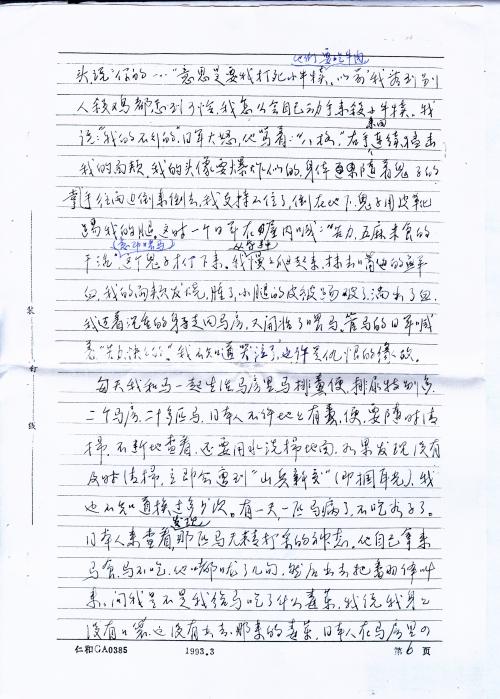 他们要吃牛肉
头说"你的…"意思是要我打死小牛犊。以前我看到别
人杀鸡都怎到了怕,我怎么会自己动手来杀小牛犊。我
说:"我的不行的"日军大怒,他骂着:"八格,"右手来回连续猛击
我的面颊,我的头像要爆炸似的,身体 随着鬼子的
掌手往两边倒来倒去,我支持不住了,倒在地下,鬼子用皮靴
踢我的腿。这时一个日军在屋内喊:"苦力,五麻来食的
干活"(意即喂马)这个鬼子才停下来,我从地上慢慢爬起来,抹去嘴边的鲜
血,我的面颊发烧,肿了,小腿的皮被踢破了,淌出了血,
我 着沉重的身子走回马房,又开始了喂马,管马的日军喊
着"苦力,快快的"。我不知道哭泣了,这样
每天我和马一起生活马房里马排粪便,排尿特别多,
二个马房,二十多匹马,日本人不许地上有粪便,要随时清
扫,不断地查看,还要用水洗扫地面,如果发现没有
及时清扫,立即会遭到"山兵新交"(即掴耳光),我
也不知道挨过多少次。有一天,一匹马病了,不吃水了。
日本人来查看,发现那匹马无精打采的神态。他自己拿来
马食,马不吃,他嘟哝了几句,然后出去把翻译叫
来,问我是不是我给马吃了什么毒药,我说我身上
没有口袋,又没有出去,那来的毒药,日本人在马房里
装
订
线
仁和GA0385 1993.3 第6页